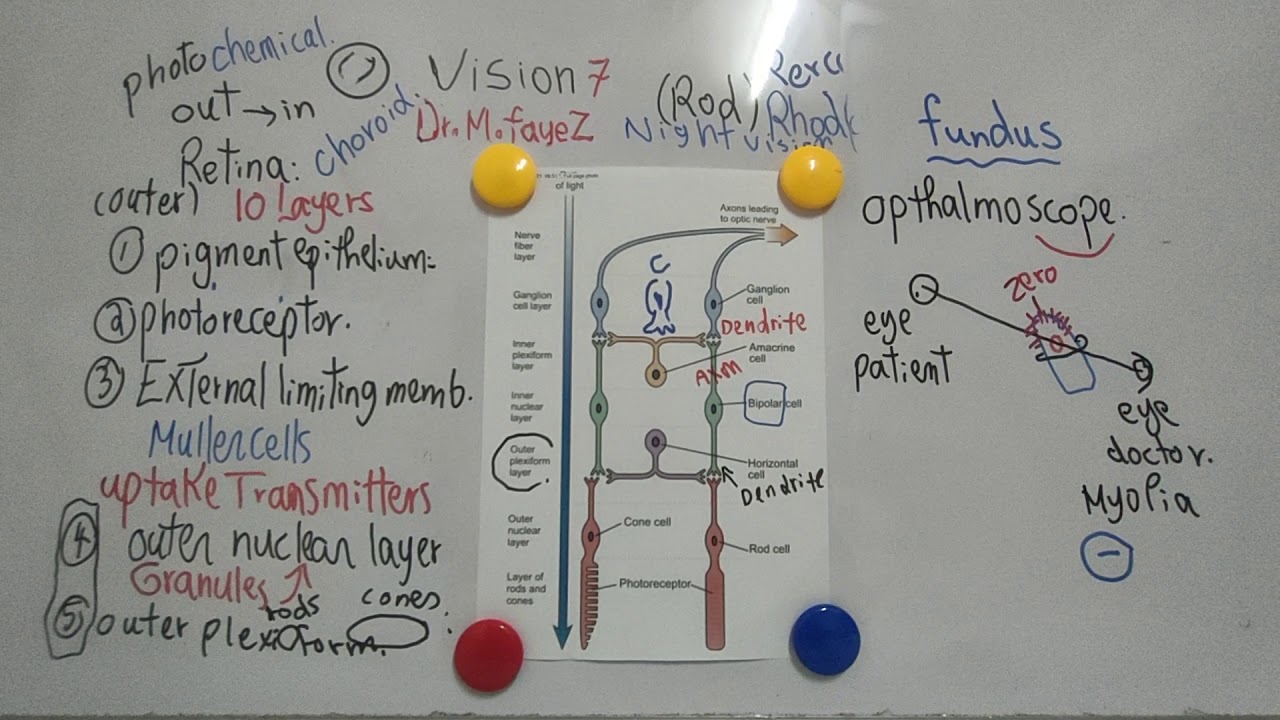 photochemical.
out → in
Retina: choroid.
(outer) 10 Layers
① pigment epithelium:
② photoreceptor.
③ External limiting memb.
Muller cells
uptake Transmitters
④ outer nuclear layer
Granules
rods cones.
⑤ outer plexiform.
Vision 7
Dr. M. fayeZ
(Rod)
Night vision
of light
Axons leading
to optic nerve
Nerve
fiber
layer
Ganglion
cell layer
Ganglion
cell
Dendrite
Inner
plexiform
layer
Amacrine
cell
Axon
Inner
nuclear
layer
Bipolar cell
Outer
plexiform
layer
Horizontal
cell
Dendrite
Outer
nuclear
layer
Cone cell
Rod cell
Layer of
rods and
cones
Photoreceptor
fundus
opthalmoscope.
zero
eye
patient
eye
doctor.
Myolia
−